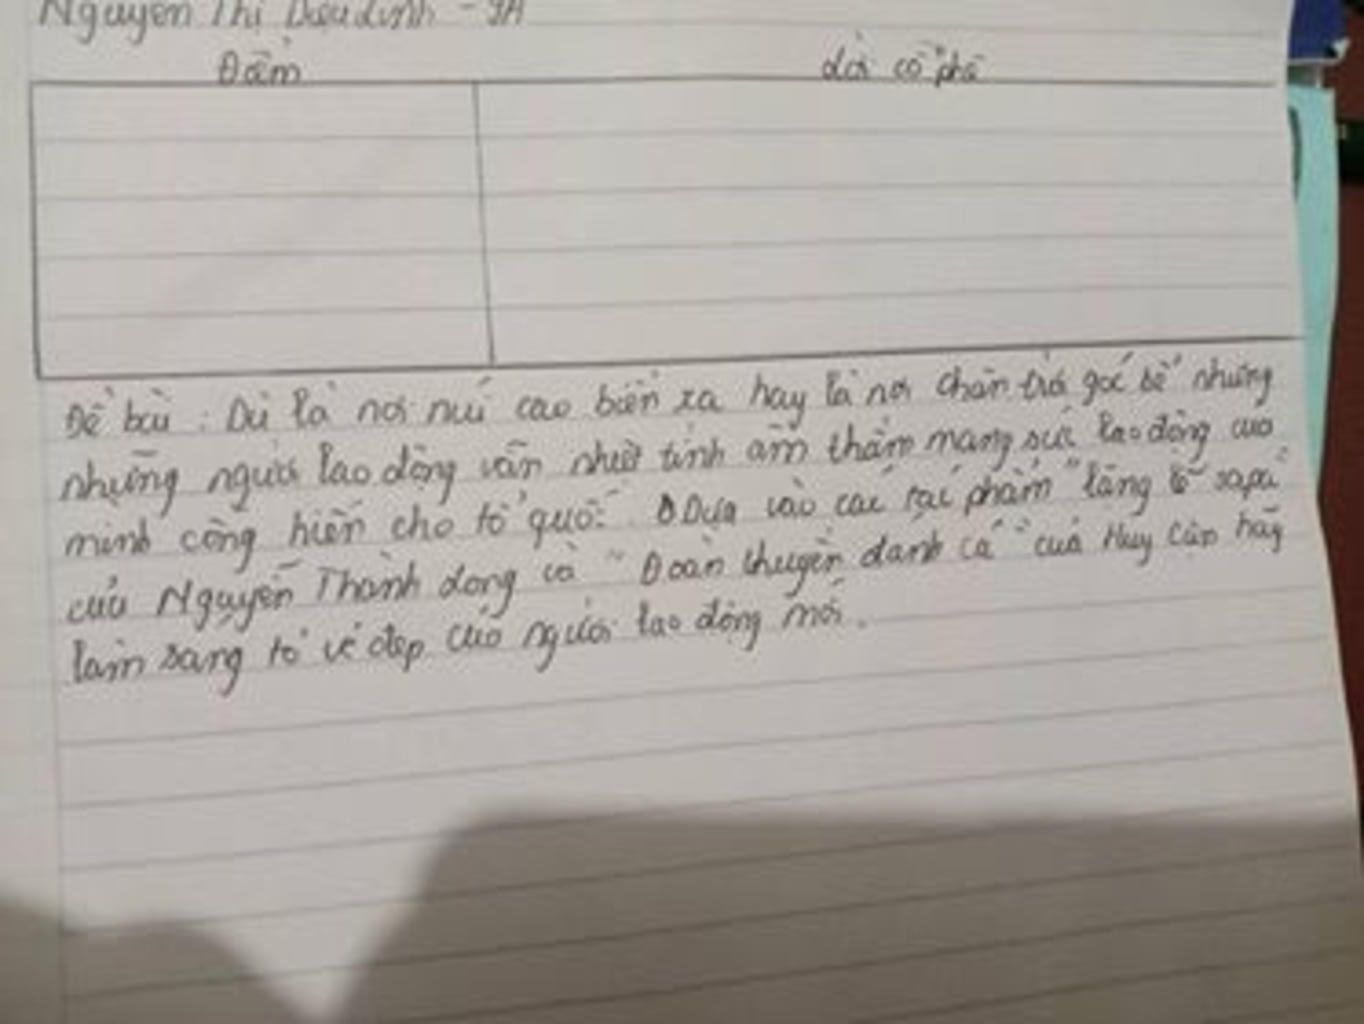 Nguyễn Thị Diệu Linh - 9A
Điểm lời cô phê
Đề bài : Dù là nơi núi cao biển xa hay là nơi chân trời góc bể nhưng
những người lao động vẫn nhiệt tình âm thầm mang sức lao động của
mình cống hiến cho tổ quốc". Dựa vào các tác phẩm "lặng lẽ sapa"
của Nguyễn Thành long và "Đoàn thuyền đánh cá" của Huy Cận hãy
làm sáng tỏ vẻ đẹp của người lao động mới.